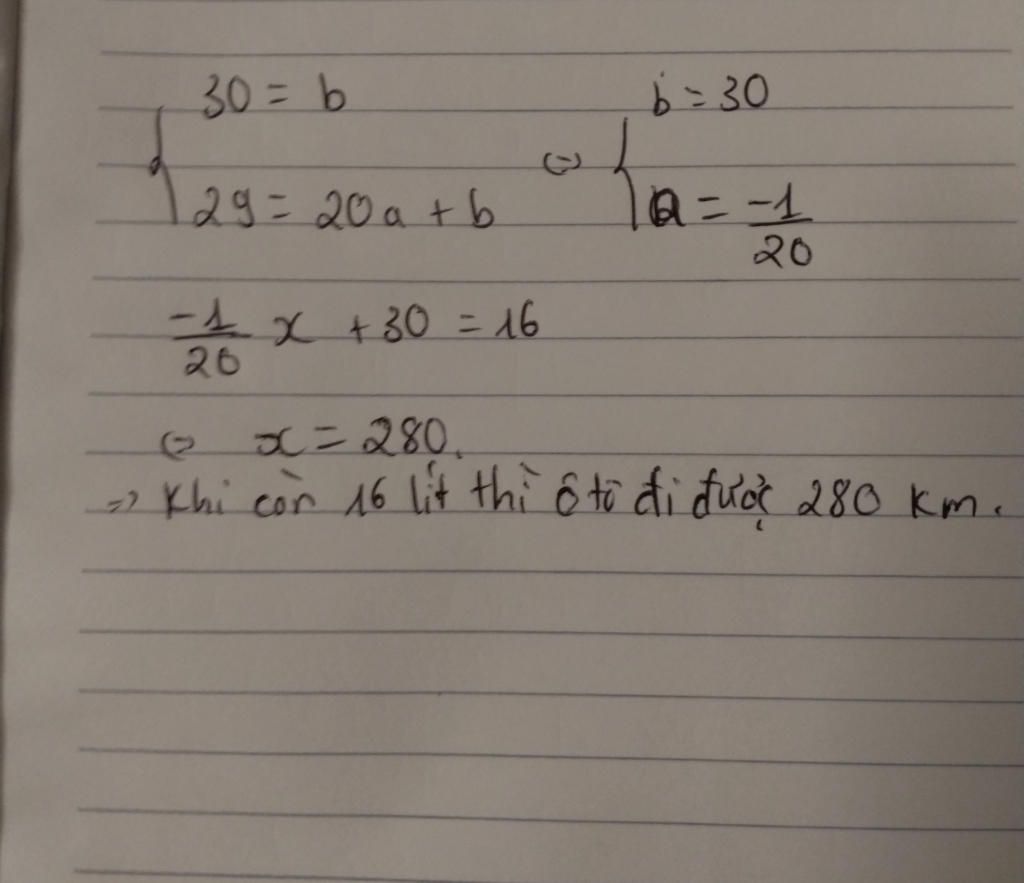 { 30 = b ⇔ { b = 30
{ 29 = 20a + b ⇔ { a = -1/20
-1/20 x + 30 = 16
⇔ x = 280.
=> Khi còn 16 lít thì ô tô đi được 280 km.